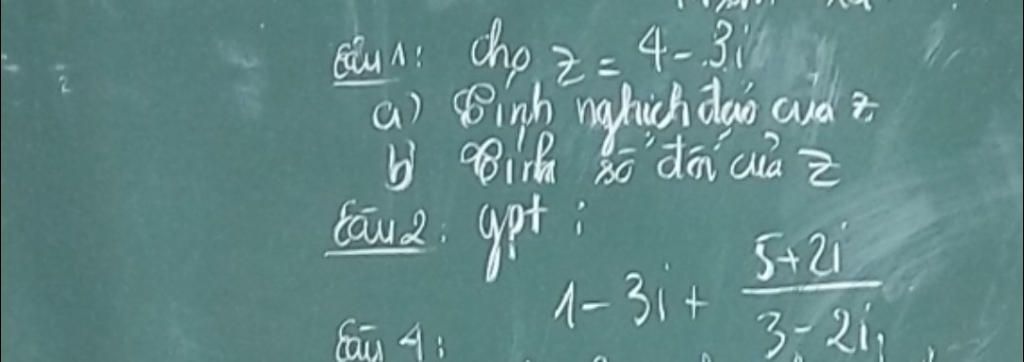 Câu 1: Cho z = 4 - 3i
a) Tính nghịch đảo của z
b) Tính số đối của z
Câu 2: gpt:
1 - 3i + \frac{5+2i}{3-2i}
Câu 4: